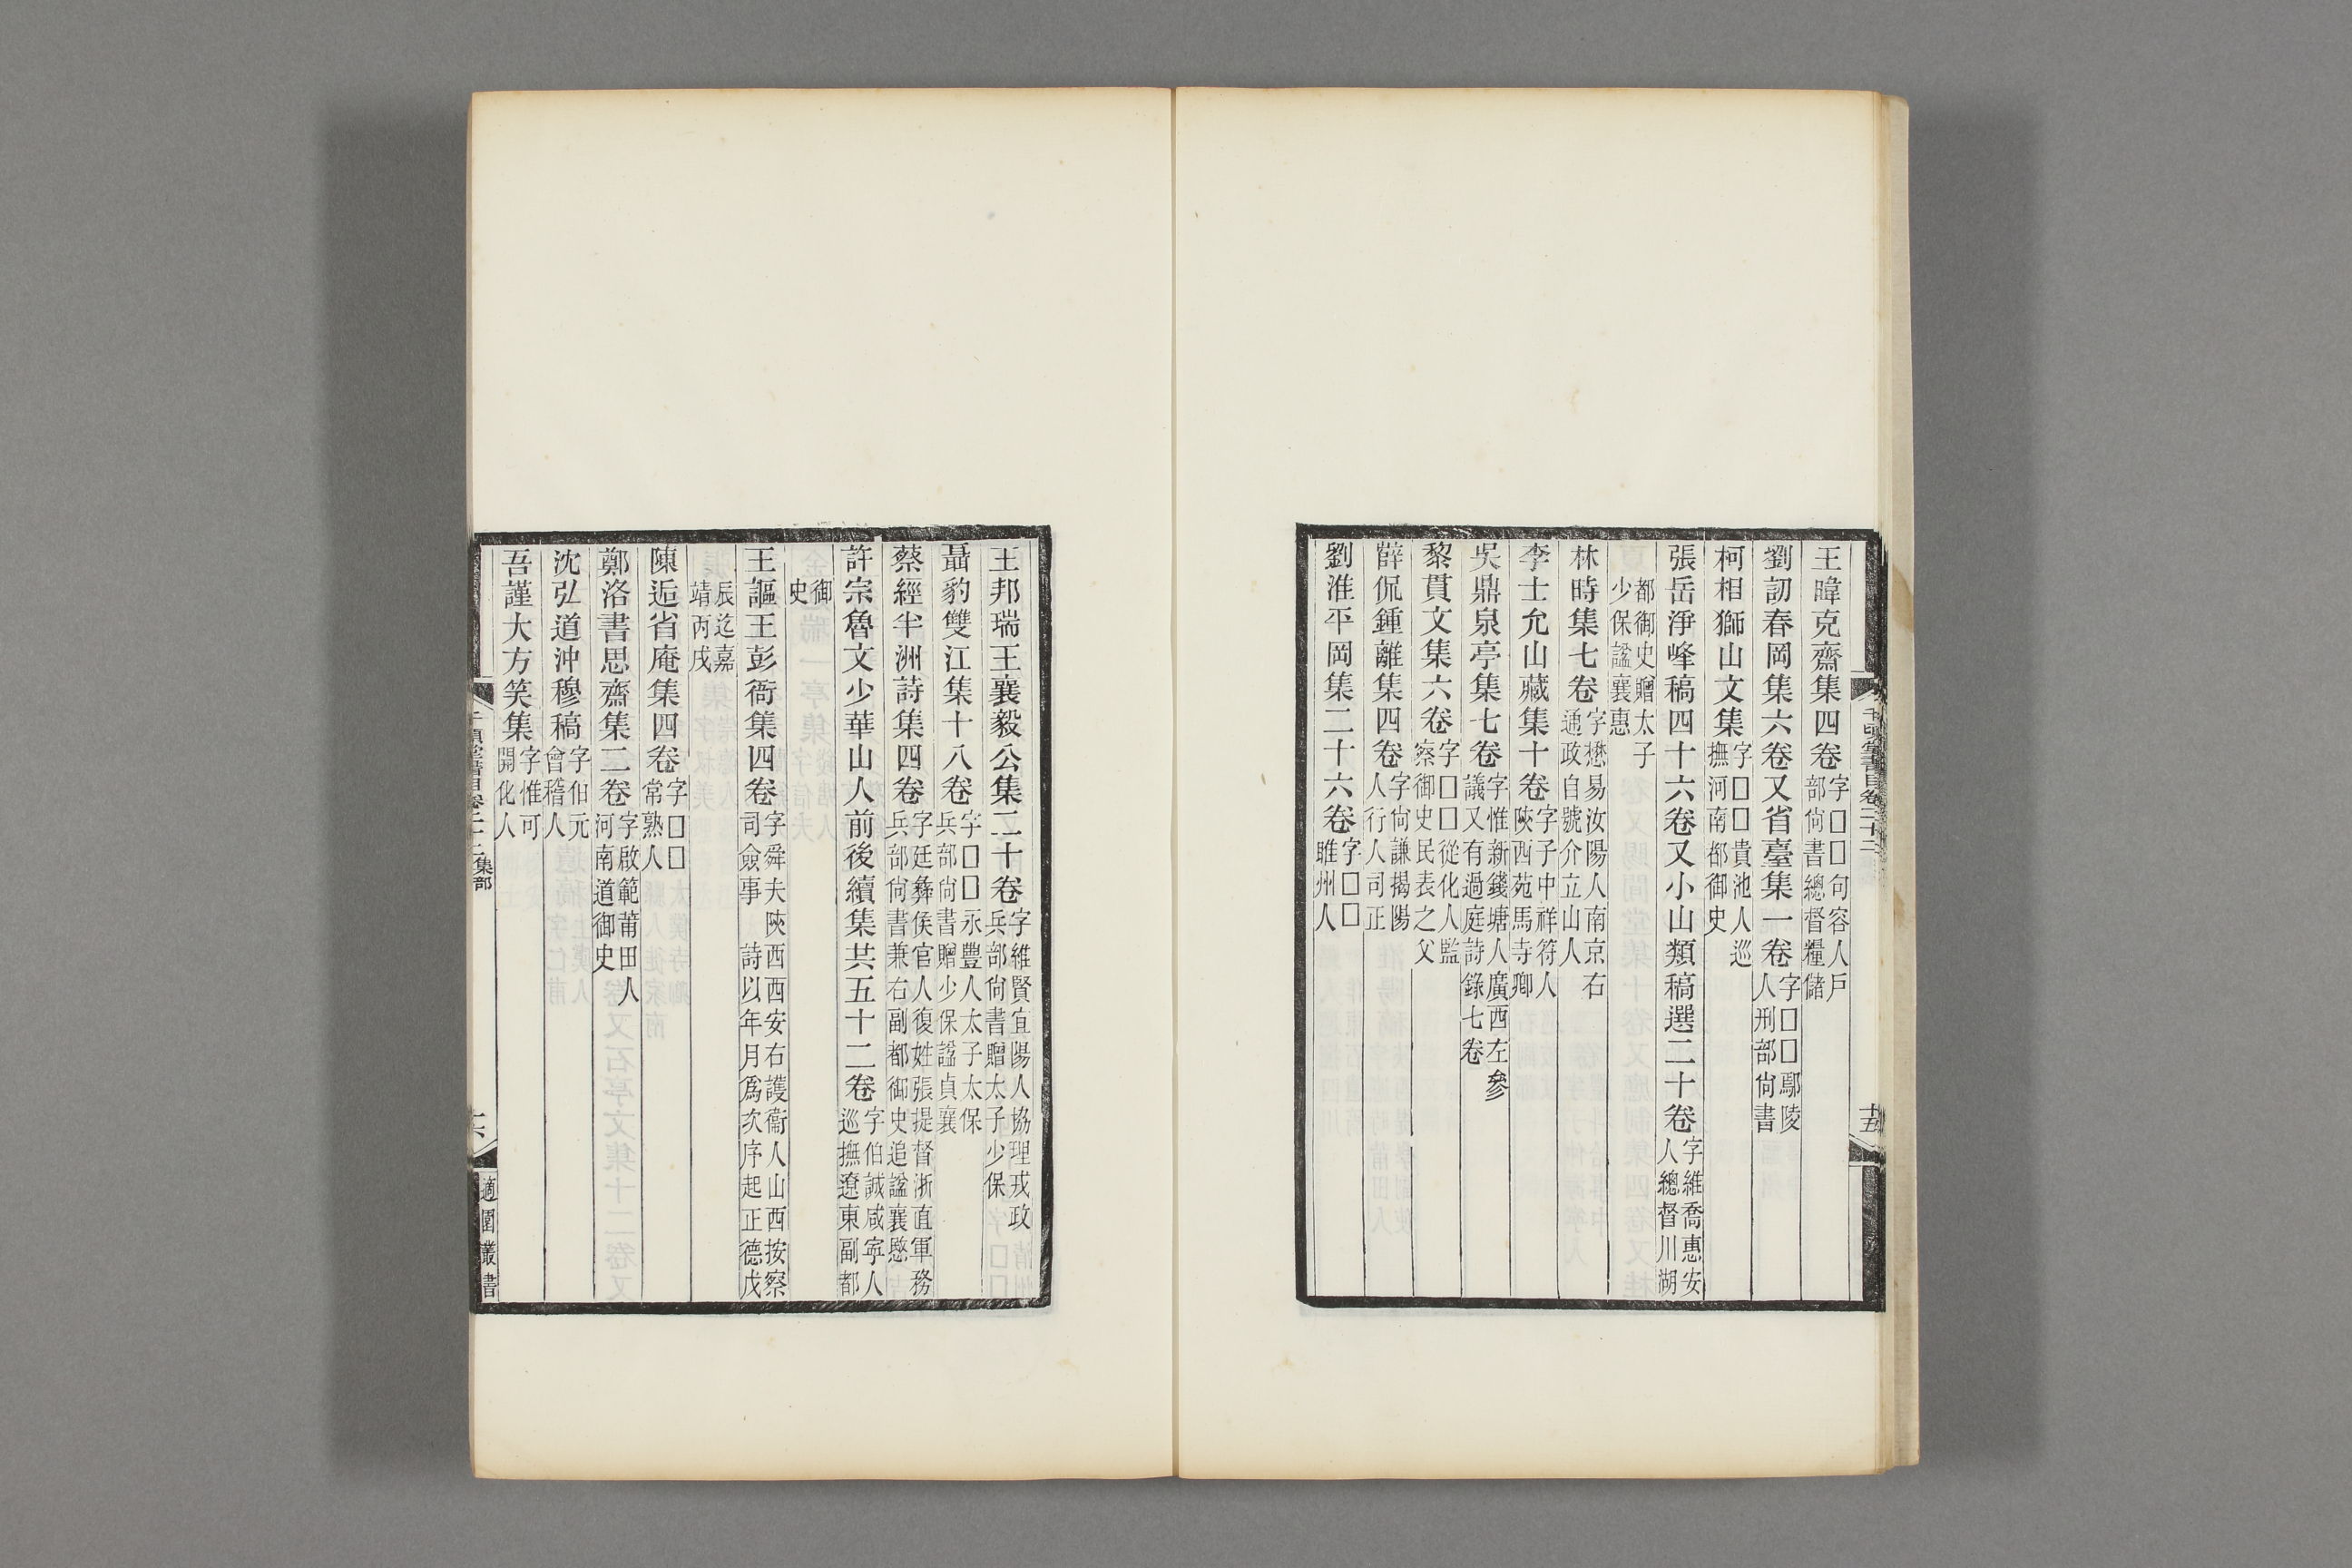 王暐克齋集四卷字□□句容人戶部尙書總督糧儲
劉訒春岡集六卷又省臺集一卷字□□鄢陵人刑部尙書
柯相獅山文集字□□貴池人巡撫河南都御史
張岳淨峰稿四十六卷又小山類稿選二十卷字維喬惠安人總督川湖
都御史贈太子少保諡襄惠
林時集七卷字懋易汝陽人南京右通政自號介立山人
李士允山藏集十卷字子中祥符人陝西苑馬寺卿
吳鼎泉亭集七卷字惟新錢塘人廣西左參議又有過庭詩錄七卷
黎貫文集六卷字□□從化人監察御史民表之父
薛侃鍾離集四卷字尙謙揭陽人行人司正
劉淮平岡集二十六卷字□□睢州人
千頃堂書目卷二十二
十五
王邦瑞王襄毅公集二十卷字維賢宜陽人協理戎政兵部尙書贈太子少保
聶豹雙江集十八卷字□□永豐人太子太保兵部尙書贈少保諡貞襄
蔡經半洲詩集四卷字廷彝侯官人復姓張提督浙直軍務兵部尙書兼右副都御史追諡襄愍
許宗魯文少華山人前後續集共五十二卷字伯誠咸寧人巡撫遼東副都
御史
王謳王彭衙集四卷字舜夫陝西西安右護衞人山西按察司僉事 詩以年月爲次序起正德戊
辰迄嘉靖丙戌
陳逅省庵集四卷字□□常熟人
鄭洛書思齋集二卷字啟範莆田人河南道御史
沈弘道沖穆稿字伯元會稽人
吾謹大方笑集字惟可開化人
千頃堂書目卷二十二 集部
十六
適園叢書